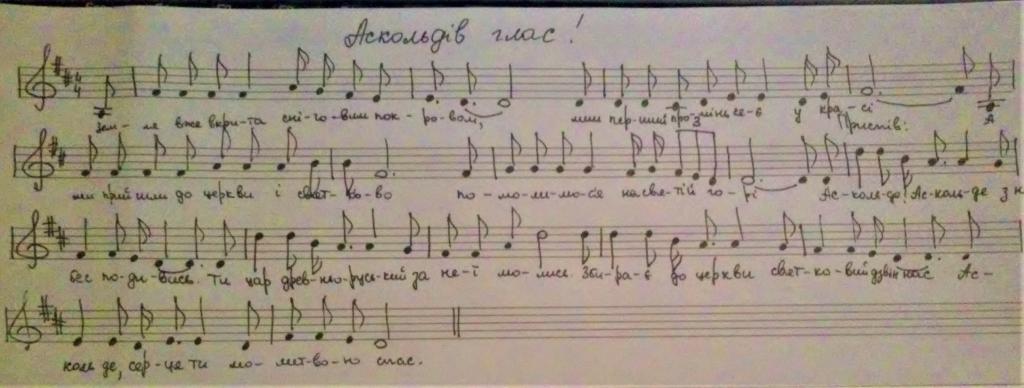 Аскольдів глас!
4 4
Зем- ля вже вкри-та сні-го-вим пок-ро-вом, мии пер-ший про-мінь се-є у кра-сі А
Приспів:
ми прийшли до церкви і свят-ко-во по-мо-ли-мо-ся на свя-тій го-рі Ас-коль-до! Ас-коль-де з н
бес по-ди-вись. Ти цар древ-ньо-русь-кий за не-ї мо-лись. Зби-ра-є до церкви свят-ко-вий дзвін нас Ас-
коль де, сер-це ти мо-лит-во-ю спас.